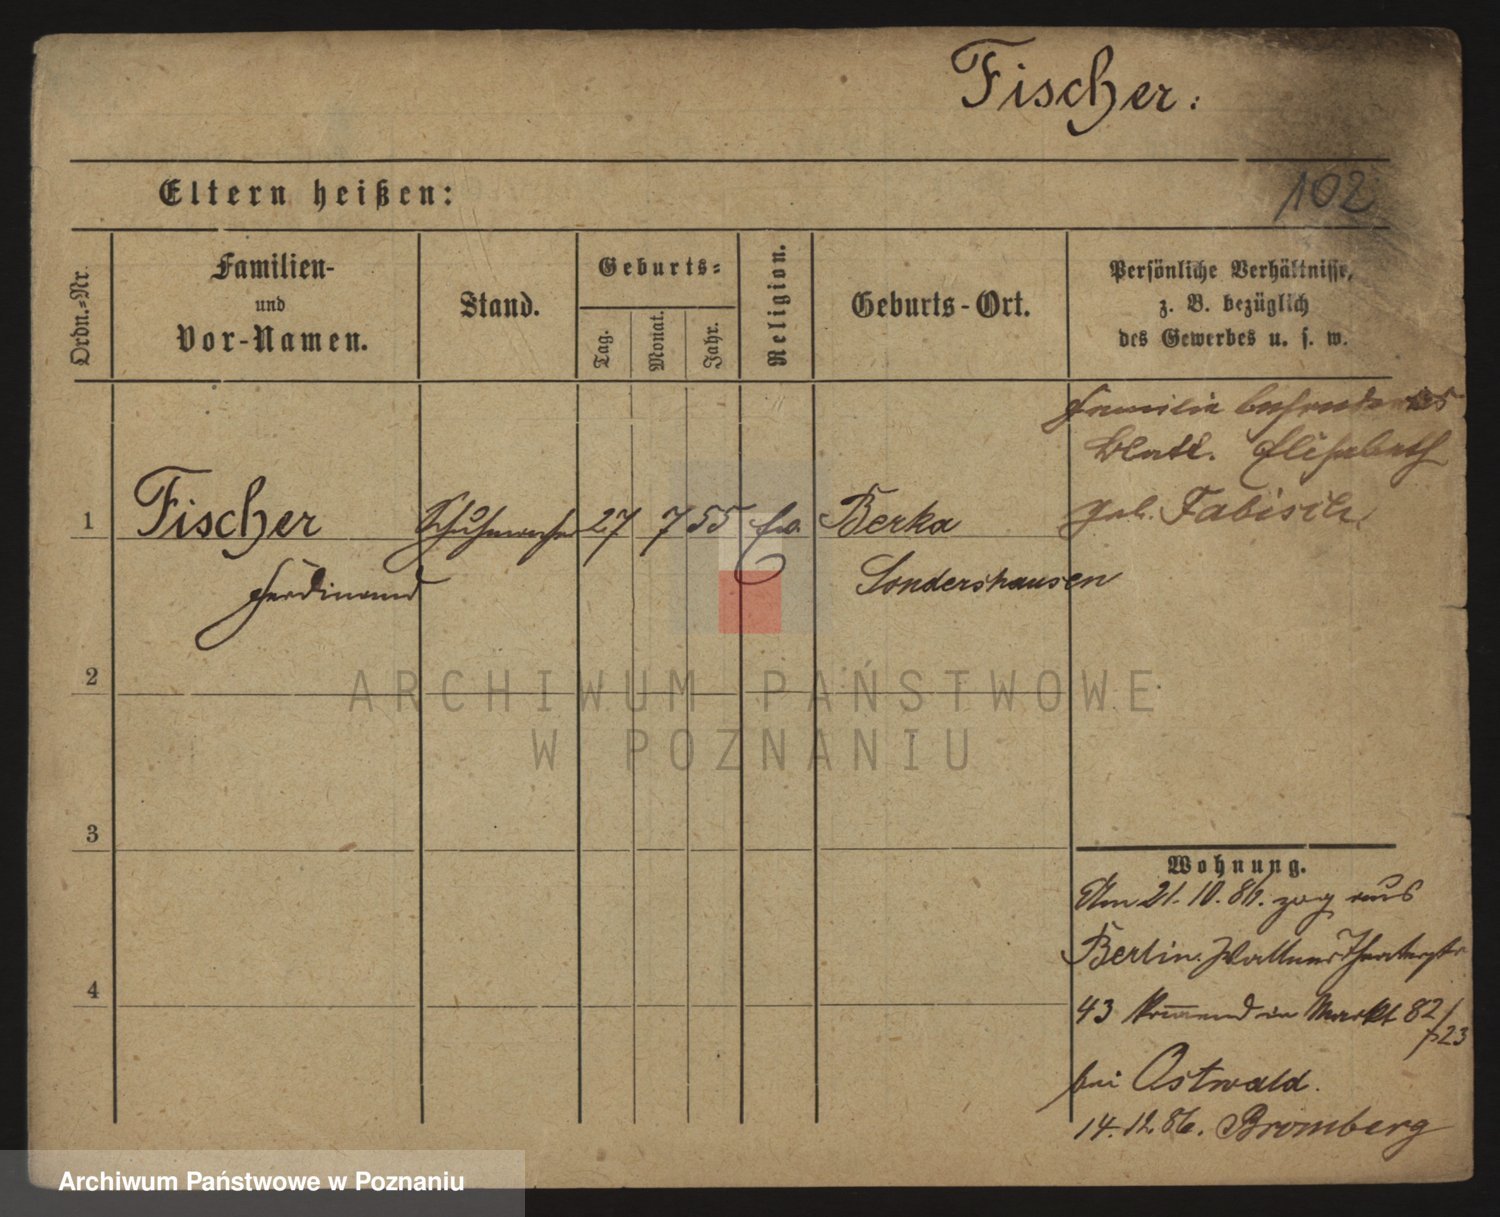 Fischer:
102
Eltern heißen:
Ordn.=Nr.
Familien-
und
Vor-Namen.
Stand.
Geburts=
Tag.
Monat.
Jahr.
Religion.
Geburts-Ort.
Persönliche Verhältnisse,
z. B. bezüglich
des Gewerbes u. s. w.
Familie besonderes
Blatt. Elisabeth
geb. Fabisch.
1 Fischer Schuhmacher 27 7 55 ev. Berka
Ferdinand Sondershausen
2
3
4
Wohnung.
Am 21. 10. 86. zog aus
Berlin. Wallnertheaterstr
43 kommend in Markt 82/
/23
bei Ostwald.
14. 12. 86. Bromberg
ARCHIWUM PAŃSTWOWE
W POZNANIU
Archiwum Państwowe w Poznaniu